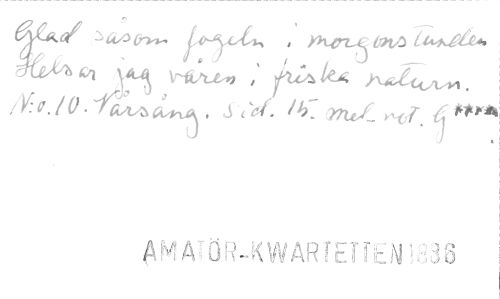 Glad såsom fogeln i morgonstunden
Helsar jag våren i friska naturn.
N:o. 10. Vårsång. Sid. 15. mel. not. G****
AMATÖR-KWARTETTEN 1886